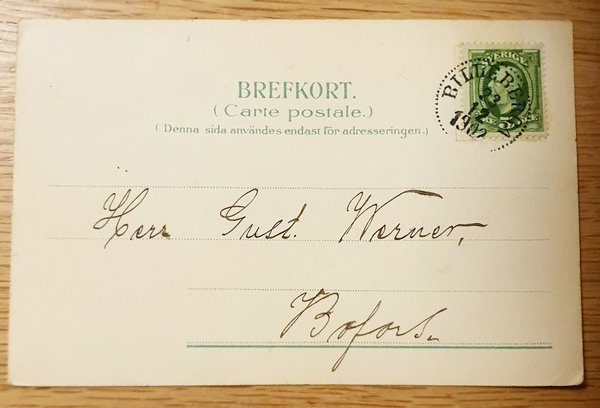 BREFKORT.
( Carte postale. )
( Denna sida användes endast för adresseringen. )
SVERIGE
23
12
1902
Herr Gust. Werner,
Bofors.